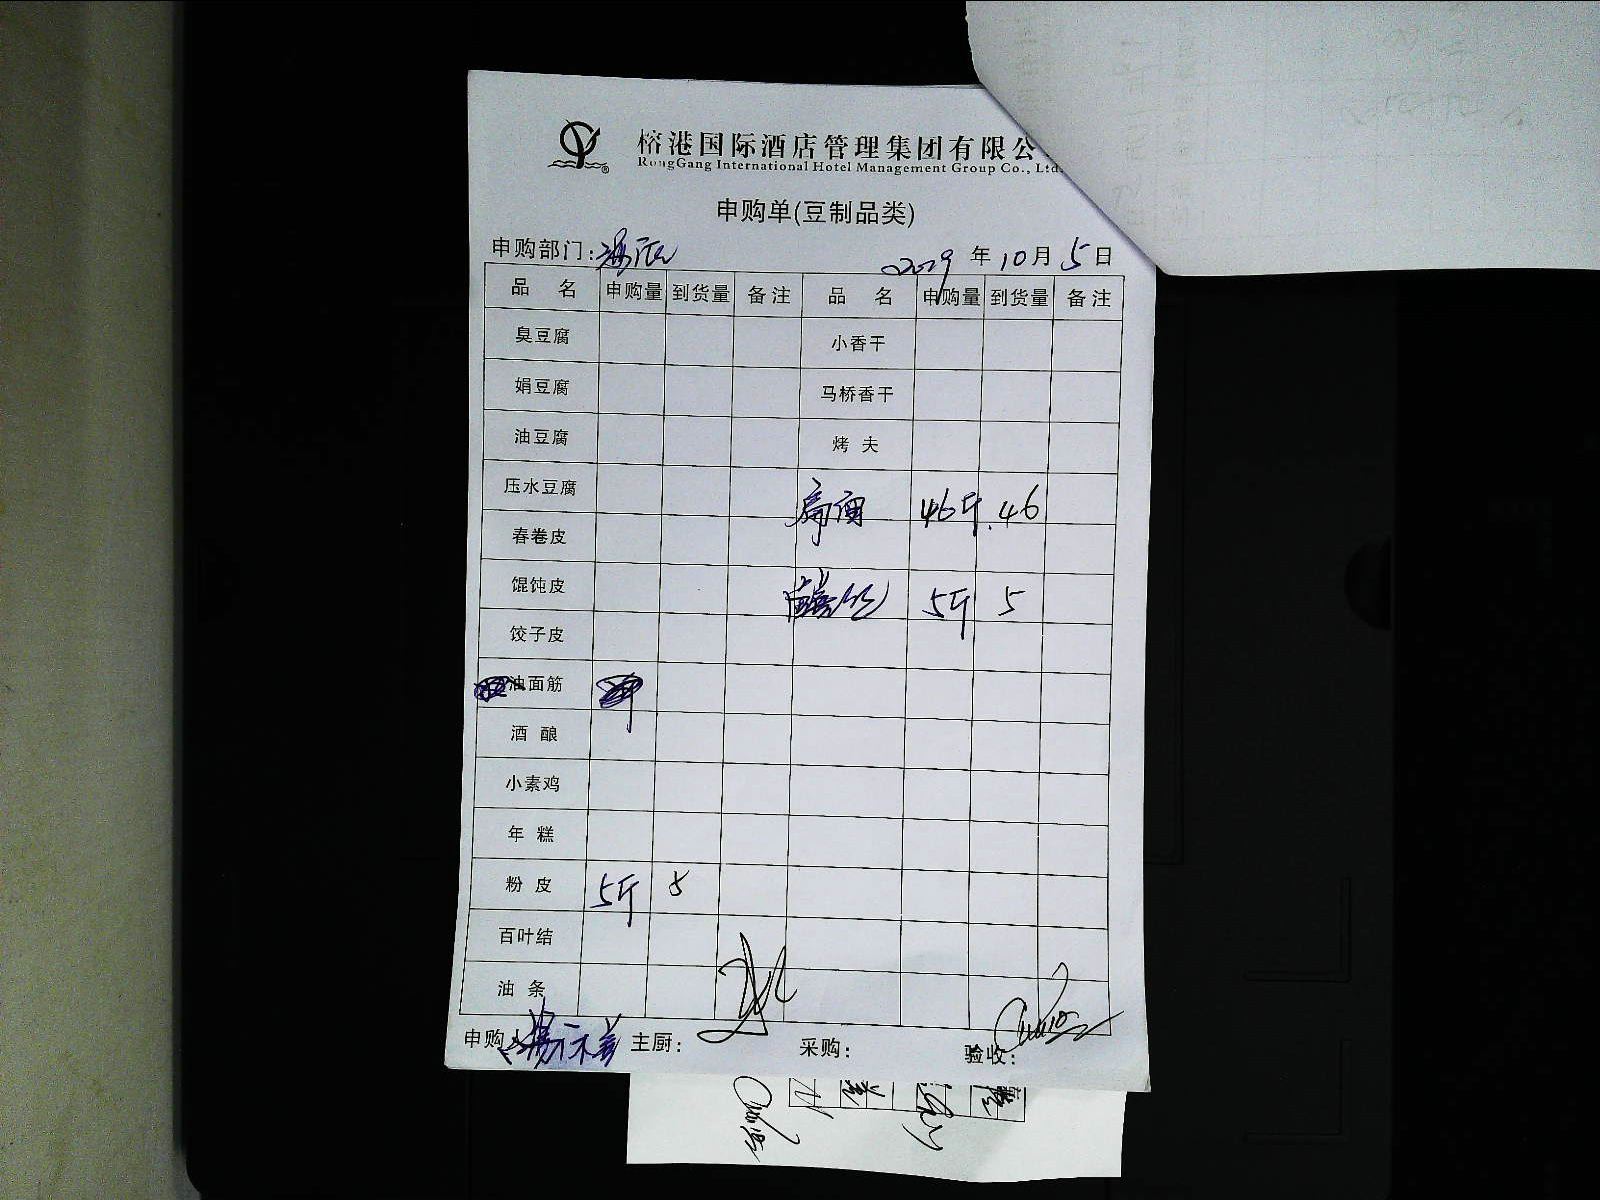 榕港国际酒店管理集团有限公
RongGang International Hotel Management Group Co., Ltd.
申购单(豆制品类)
申购部门: 年 10 月 5 日
品 名 申购量 到货量 备注 品 名 申购量 到货量 备注
臭豆腐 小香干
娟豆腐 马桥香干
油豆腐 烤 夫
压水豆腐 46斤 46
春卷皮
馄饨皮 5斤 5
饺子皮
油面筋
酒 酿
小素鸡
年 糕
粉 皮 5斤 5
百叶结
油 条
申购人 主厨: 采购: 验收: